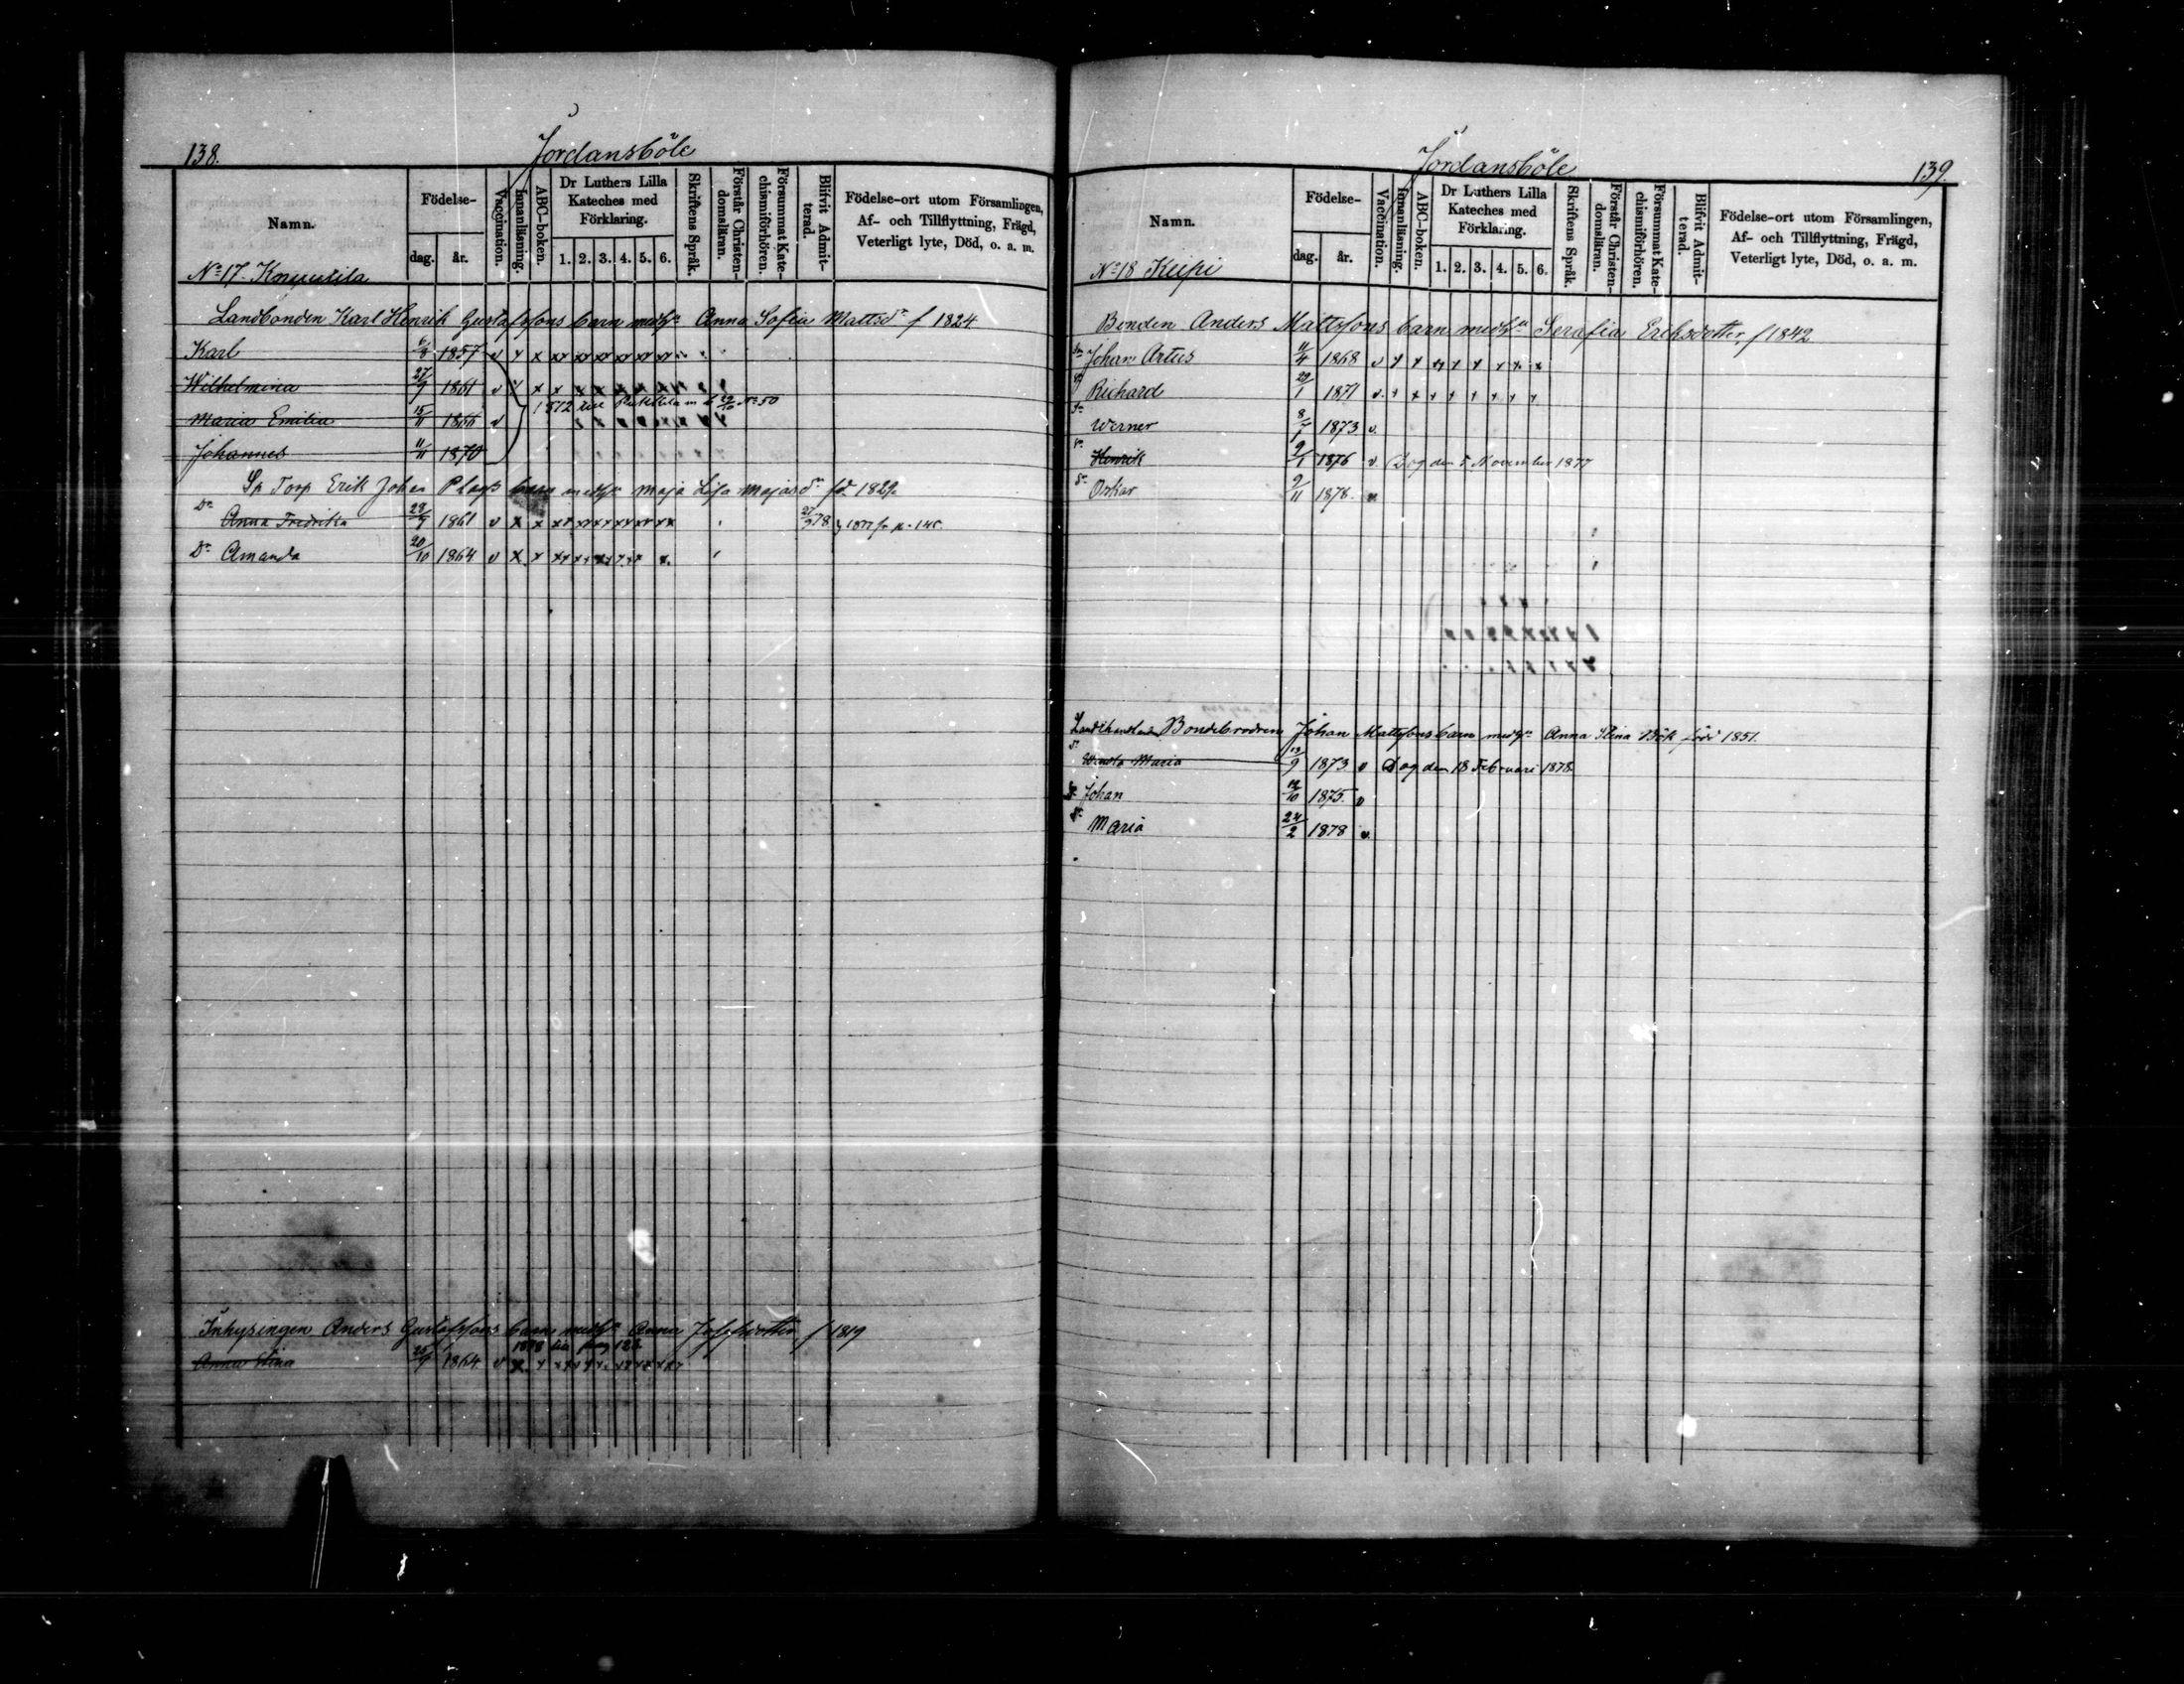 138.
Jordansböle
Namn.
Födelse-
dag.
år.
Vaccination.
Innanläsning.
ABC-boken.
Dr Luthers Lilla Kateches med Förklaring.
1. 2. 3. 4. 5. 6.
Skriftens Språk.
Förstår Christendomsläran.
Försummat Katechismiförhören.
Blifvit Admitterad.
Födelse-ort utom Församlingen,
Af- och Tillflyttning, Frägd,
Veterligt lyte, Död, o. a. m.
No 17
Landbonden Karl Henrik Gustafssons barn med h:n Anna Sofia Mattsdr f 1824
Karl 6/8 1857 v
Wilhelmina 27/9 1861 v
Maria Emilia 15/11 1866 v
Johannes 11/11 1870
Sp Torp Erik Johan barn med h:n Maja Lisa Majasdr fd. 1829
Dr Anna Fredrika 28/7 1861 v
Dr Amanda 20/10 1864 v
Inhysingen Anders Gustafssons barn med h:n Anna f 1819
1878 till pag
Anna Stina 25/7 1864 v
Jordansböle
139.
Namn.
Födelse-
dag.
år.
Vaccination.
Innanläsning.
ABC-boken.
Dr Luthers Lilla Kateches med Förklaring.
1. 2. 3. 4. 5. 6.
Skriftens Språk.
Förstår Christendomsläran.
Försummat Katechismiförhören.
Blifvit Admitterad.
Födelse-ort utom Församlingen,
Af- och Tillflyttning, Frägd,
Veterligt lyte, Död, o. a. m.
No 18 Keipi
Bonden Anders Mattssons barn med h:n Serafia Eriksdotter, f 1842
Sn Johan Artus 11/4 1868 v
Sn Richard 29/1 1871 v.
Sn Werner 8/7 1873 v.
Sn Henrik 9/1 1876 v Dog den 5 November 1877
Sn Oskar 9/11 1878. v
Bondebrodren Johan Mattssons barn med h:n Anna Stina Bök född 1851.
Maria 13/9 1873 v Dog den 18 Februari 1878
Sn Johan 12/10 1875. v
Maria 24/2 1878 v.